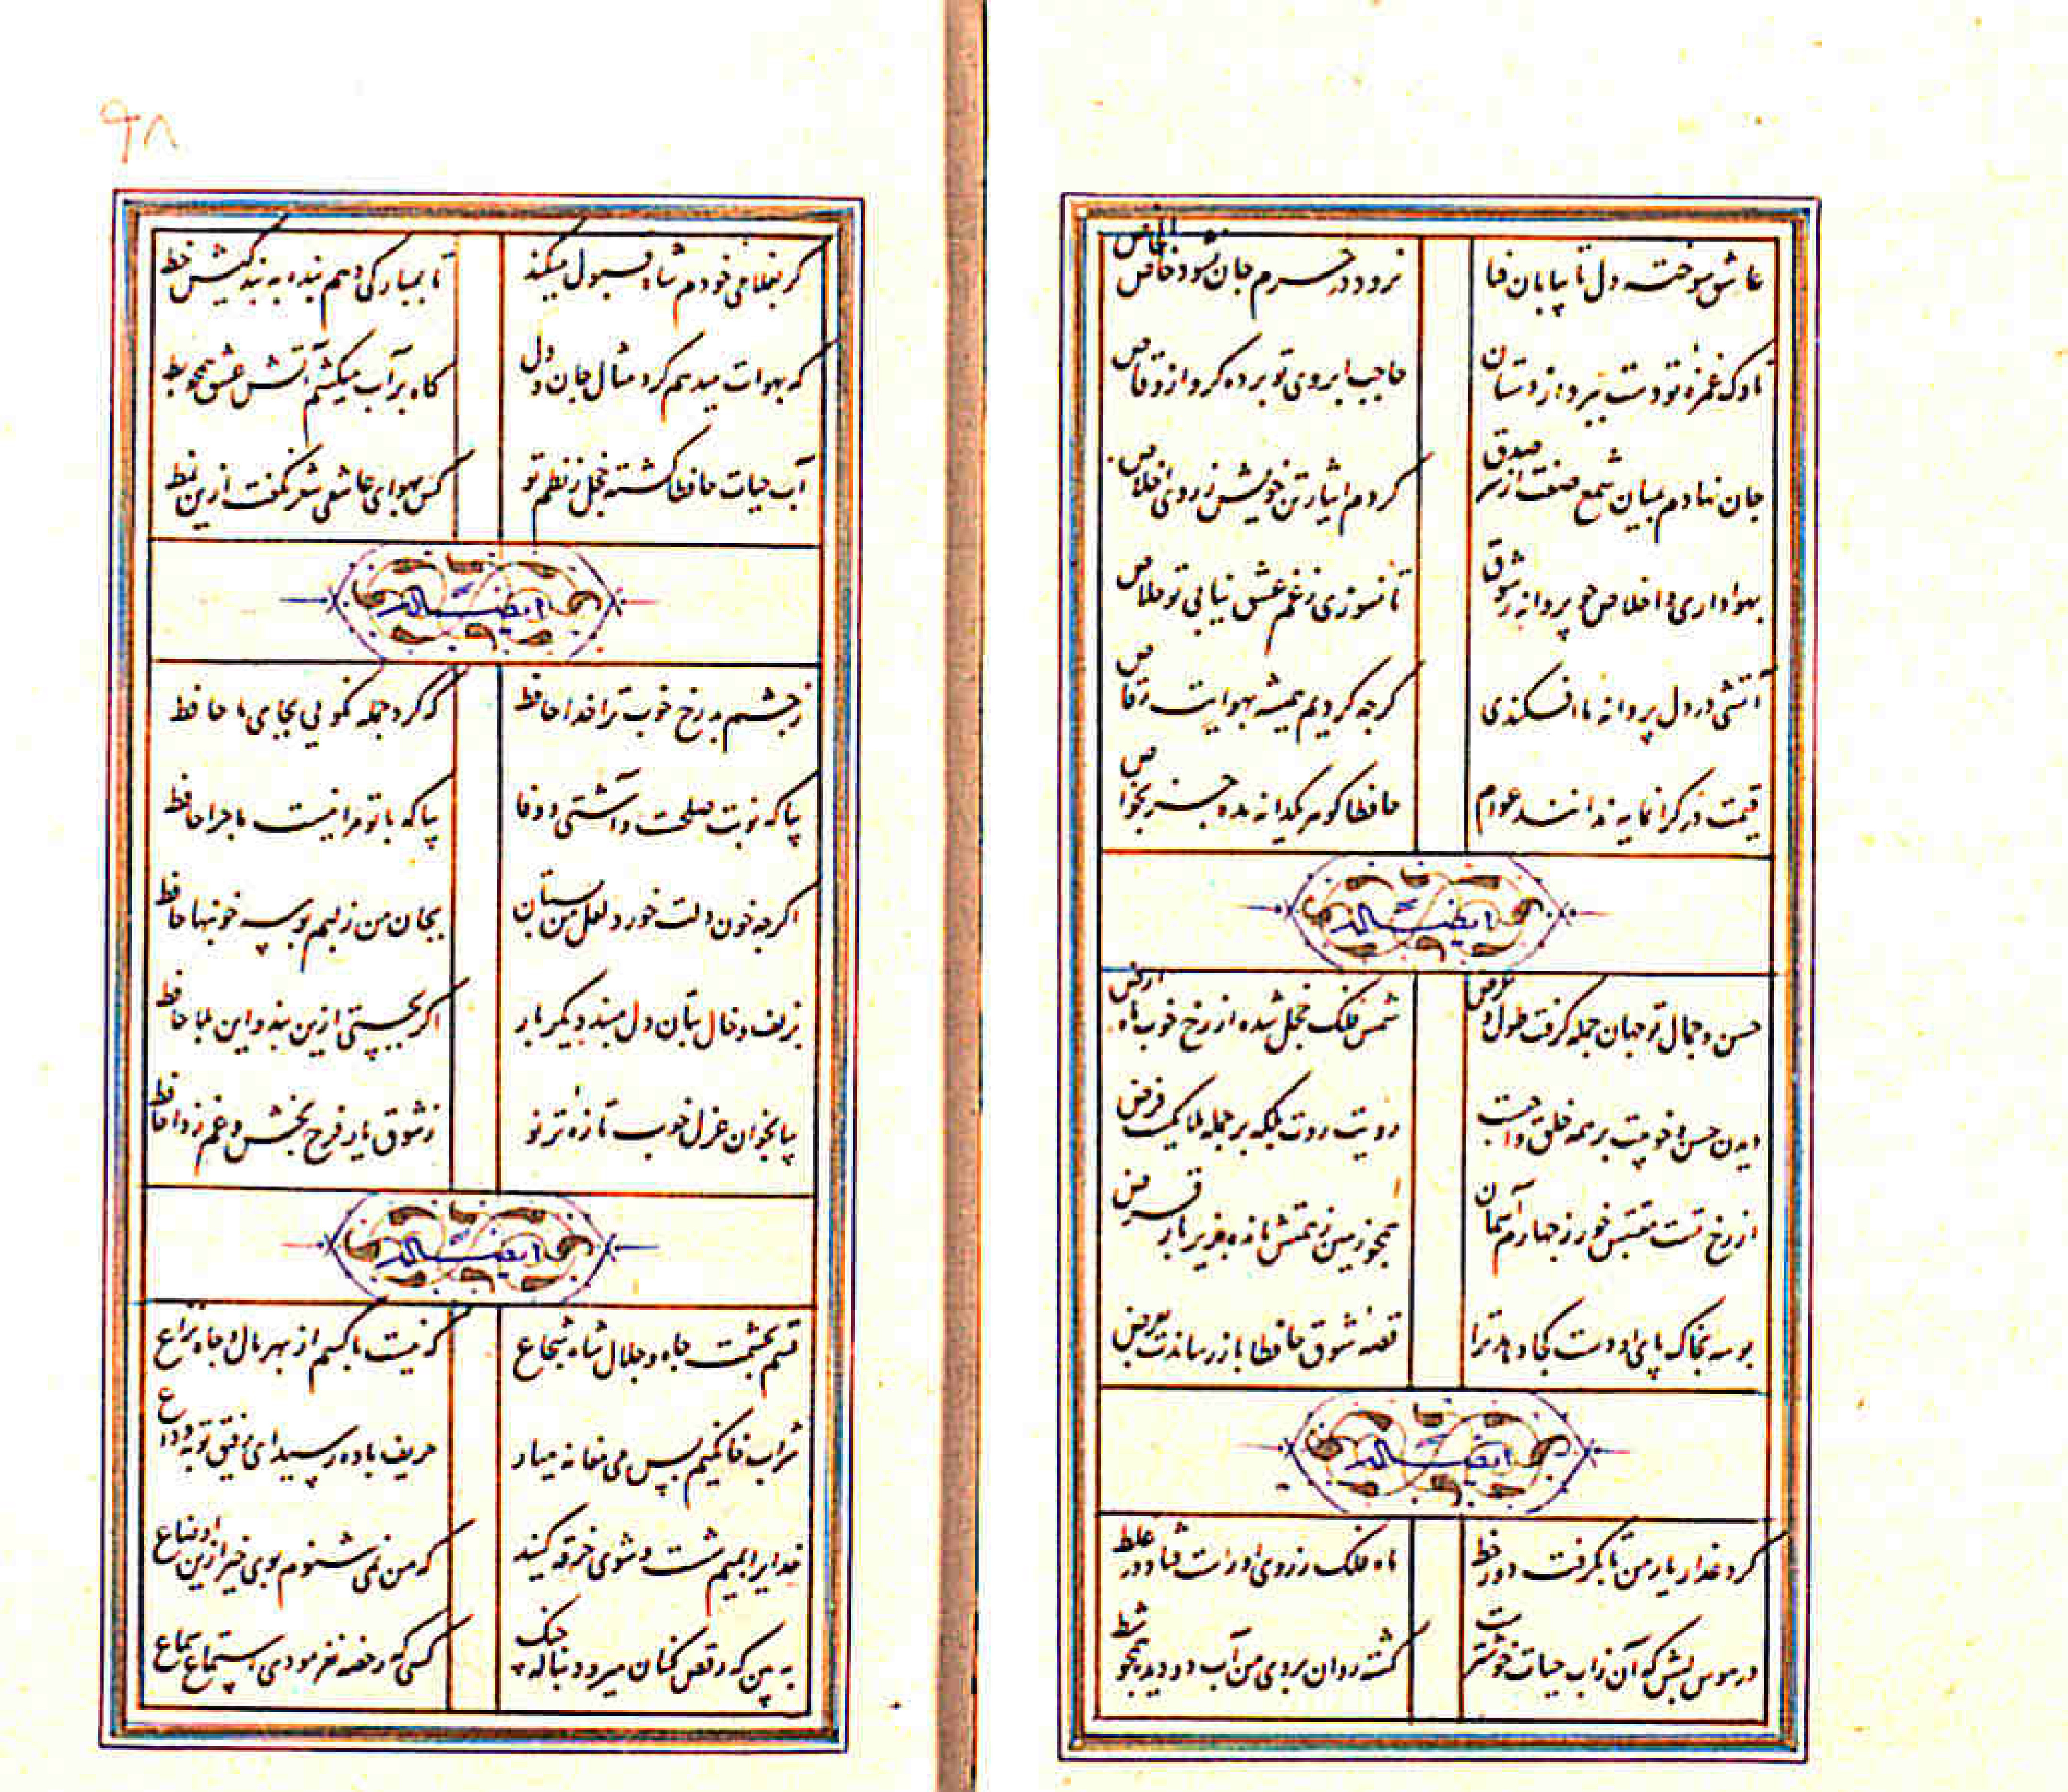 عاشق سوخته دل تا بیابان فنا
نرود در حرم جان نشود خاص الخاص
ناوک غمزه تو دست ببرد از دستان
حاجب ابروی تو برده گرو از وقاص
جان نهادم بمیان شمع صفت از سر صدق
کردم ایثار تن خویش ز روی اخلاص
بهواداری و اخلاص چو پروانه ز شوق
تا نسوزی ز غم عشق نیابی تو خلاص
آتشی در دل پروانه ما افکندی
گرچه کردیم همیشه بهوایت رقاص
قیمت در گرانمایه ندانند عوام
حافظا گوهر یکدانه مده جز بخواص
ایضاً له
حسن و جمال تو جهان جمله گرفت طول و عرض
شمس فلک خجل شده از رخ خوب ماه ارض
دیدن حسن و خوبیت بر همه خلق واجبست
رویت روت بلکه بر جمله ملایک فرض
از رخ تست مقتبس خور ز چهارم آسمان
همچو زمین زیر بار قرض
بوسه بخاک پای او دست کجا دهد ترا
قصه شوق حافظا باز رساندت بعرض
ایضاً له
گرد عذار یار من تا بگرفت دور خط
ماه فلک ز روی او راست فتاد در غلط
در هوس لبش که آن ز آب حیات خوشترست
گشته روان بروی من آب دو دیده همچو شط
۹۸
گر بغلامی خودم شاه قبول میکند
تا بمبارکی دهم بنده به بندگیش خط
که بهوات میدهم گرد مثال جان و دل
گاه بر آب میکشم آتش عشق همچو بط
آب حیات حافظا گشته خجل ز نظم تو
کس بهوای عاشقی شعر نگفت ازین نمط
ایضاً له
ز چشم بد رخ خوب ترا خدا حافظ
که کرد جمله نکویی بجای ما حافظ
بیا که نوبت صلحست و آشتی و وفا
بیا که با تو مرا نیست ماجرا حافظ
اگرچه خون دلت خورد لعل من بستان
بجان من ز لبم بوسه خونبها حافظ
بزلف و خال بتان دل مبند دیگر بار
اگر بجستی ازین بند و این بلا حافظ
بیا بخوان غزل خوب تازه تر نو
ز شوق یار فرح بخش و غم زدا حافظ
ایضاً له
قسم بحشمت جاه و جلال شاه شجاع
که نیست با کسم از بهر مال و جاه نزاع
شراب خانگیم بس می مغانه میار
حریف باده رسید ای رفیق توبه وداع
خدایرا بمیم شست و شوی خرقه کنید
که من نمی شنوم بوی خیر ازین اوضاع
به بین که رقص کنان میرود بناله چنگ
کسی که رخصه نفرمودی استماع سماع